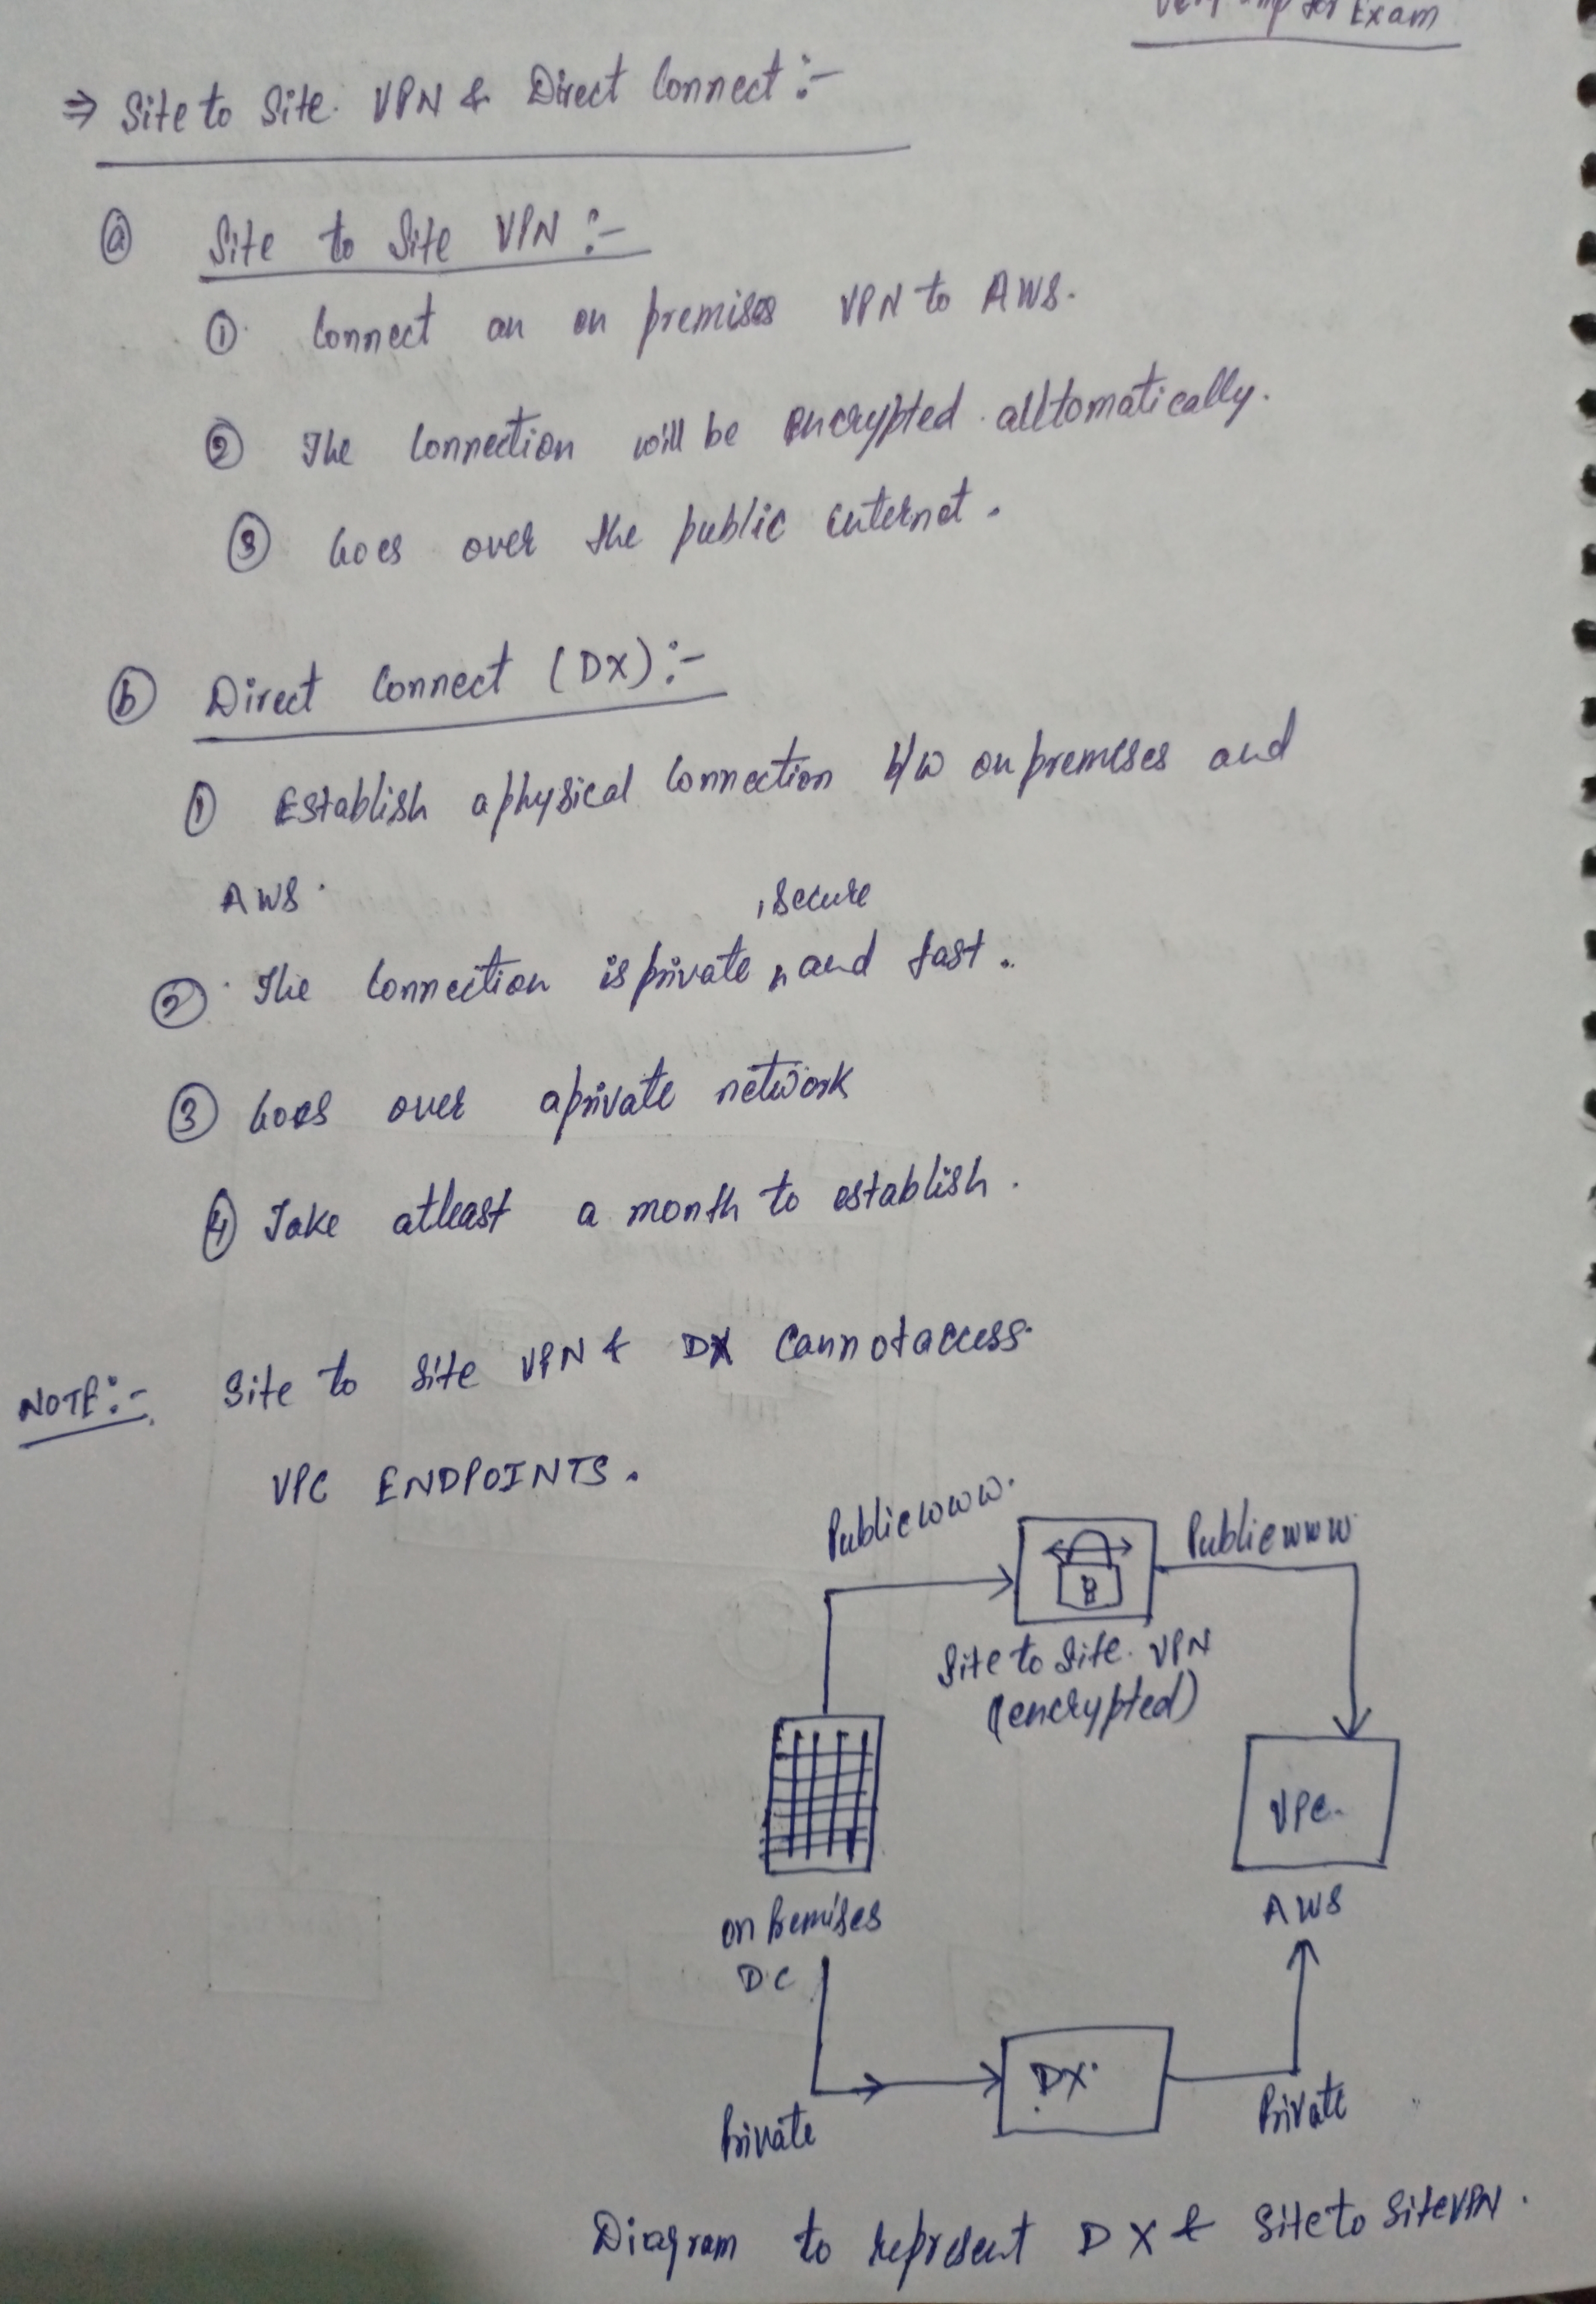 Very imp for Exam
⇒ Site to Site. VPN & Direct Connect :-
ⓐ Site to Site VPN :-
① Connect an on premises VPN to AWS.
② The Connection will be encrypted automatically.
③ Goes over the public internet.
ⓑ Direct Connect (DX) :-
① Establish a physical Connection b/w on premises and
AWS.
, secure
② The Connection is private, and fast.
③ Goes over a private network
④ Take atleast a month to establish.
NOTE :- Site to Site VPN & DX Cannot access
VPC ENDPOINTS.
Public www.
Public www
Site to Site. VPN
(encrypted)
VPC.
on premises
DC
AWS
DX.
Private
Private
Diagram to represent DX & Site to Site VPN.